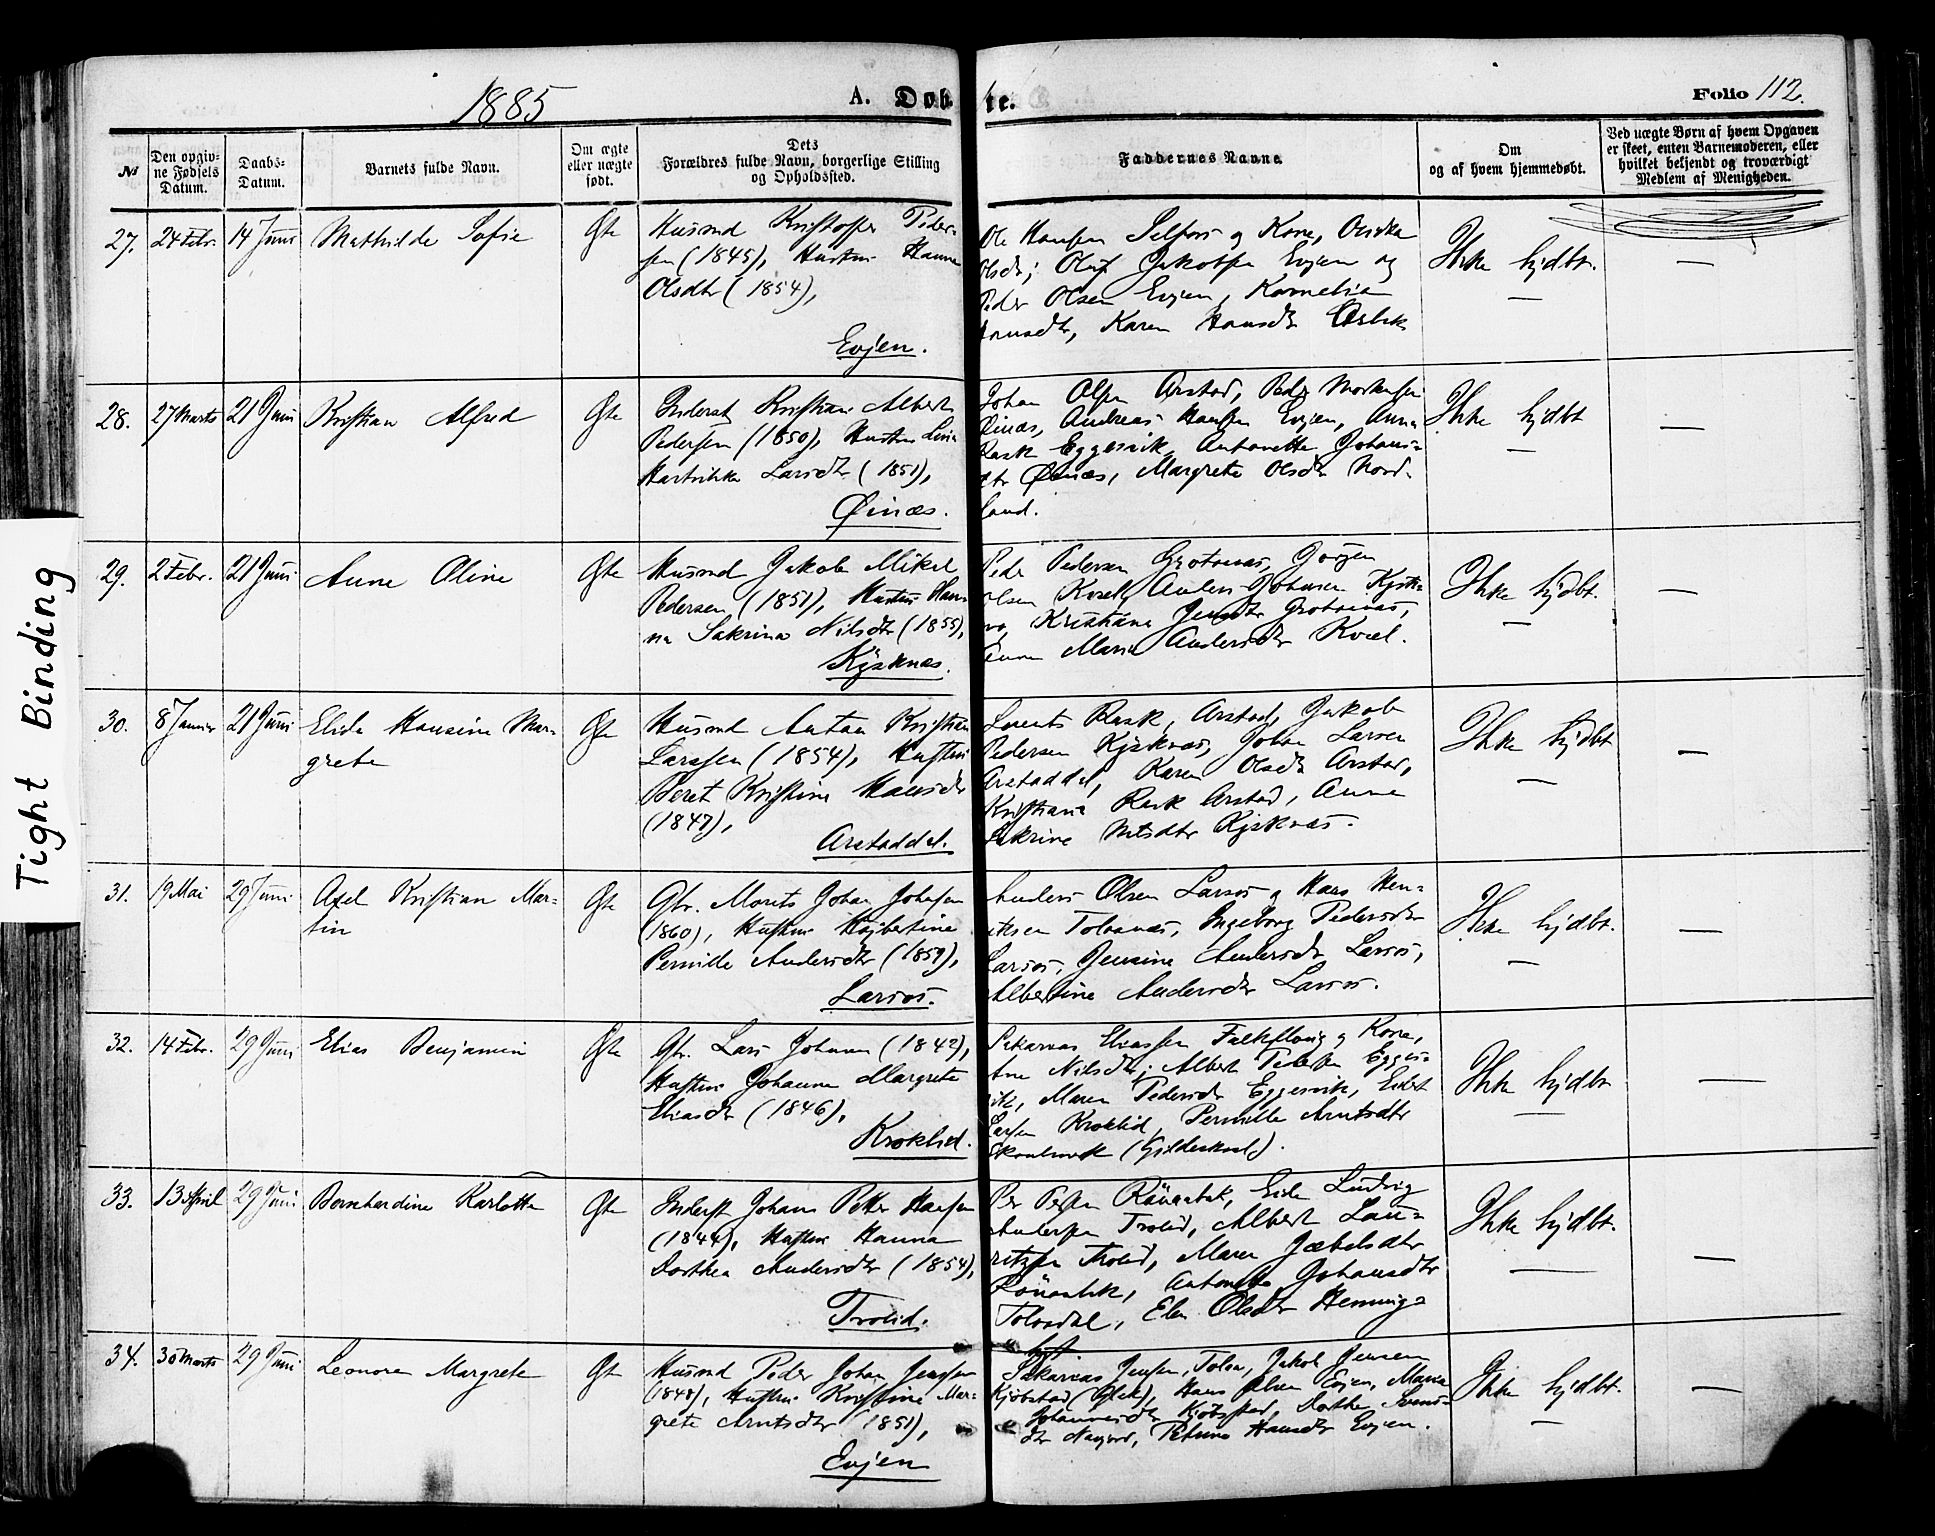 1885
A. Døbte.
Folio 112.
No
Den opgivne Fødsels Datum.
Daabs-Datum.
Barnets fulde Navn.
Om ægte eller uægte født.
Dets Forældres fulde Navn, borgerlige Stilling og Opholdssted.
Faddernes Navne.
Om og af hvem hjemmedøbt.
Ved uægte Børn af hvem Opgaven er skeet, enten Barnemoderen, eller hvilket bekjendt og troværdigt Medlem af Menigheden.
27. 24 Febr. 14 Juni Mathilde Sofie Ægte
Husmd Kristoffer Peder-
sen (1845), Hustru Hanna
Olsdtr (1854),
Evjen.
Ole Hansen Selfors og Kone,
Olsdtr; Oluf Jakobsen Evjen og
Peder Olsen Evjen, Kornelia
Hansdtr, Karen Hansdtr
Ikke hjdbt. —
28. 27 Marts 21 Juni Kristian Alfred Ægte
Inderst Kristian Albert
Pedersen (1850), Hustru Lina
Hartvikka Larsdtr (1851),
Øinæs.
Johan Olsen Arstad, Peder
Øinæs, Andreas Hansen Evjen, Anna
Rask Eggesvik, Antonette Johans-
dtr Øinæs, Margrete Olsdtr Nord-
land.
Ikke hjdbt —
29. 2 Febr. 21 Juni Anne Oline Ægte
Husmd Jakob Mikal
Pedersen (1851), Hustru Han-
na Sakrina Nilsdtr (1855),
Kjeknæs.
Peder Pedersen Grotnæs, Jørgen
Olsen Kvæl, Anders Johnsen
Kristiana Jensdtr Grotnæs,
Anne Maria Andersdtr Kvæl.
Ikke hjdbt. —
30. 8 Januar 21 Juni Elida Hansine Mar-
grete Ægte
Husmd Antan Kristian
Larssen (1854), Hustru
Beret Kristine Hansdtr
(1847),
Arstaddal.
Lorents Rask, Arstad, Jakob
Pedersen Kjeknæs, Johan Larsen
Arstaddal, Karen Olsdtr Arstad,
Kristiana Rask Arstad, Anne
Sakrine Nilsdtr Kjeknæs.
Ikke hjdbt —
31. 19 Mai 29 Juni Axel Kristian Mar-
tin Ægte
Gbr. Morits Johan Johnsen
(1860), Hustru Hojbertine
Pernille Andersdtr (1859),
Larsos.
Anders Olsen Larsos og Hans Hen-
riksen Tolvnæs, Ingeborg Pedersdtr
Larsos, Jensine Andersdtr Larsos,
Albertine Andersdtr Larsos.
Ikke hjdbt. —
32. 14 Febr. 29 Juni Elias Benjamin Ægte
Gbr. Lars Johnsen (1842),
Hustru Johanna Margrete
Eliasdtr (1846),
Kroklid.
Sakarias Eliassen Falkflaug og Kone,
Ane Nilsdtr; Albert Pedersen Egges-
vik, Maren Pedersdtr Eggesvik,
Larsen Kroklid, Pernille Arntsdtr
(Gildeskaal).
Ikke hjdbt —
33. 13 April 29 Juni Bernhardine Karlotte Ægte
Inderst Johan Petter Hansen
(1844), Hustru Hanna
Dorthea Andersdtr (1854),
Trolid.
Per Persen Rånabek, Ludvig
Andersen Trolid, Albert Lau-
ritzen Trolid, Maren Jakobsdtr
Rönabek, Antonette Johansdtr
Tolvadal, Elen Olsdtr Henning-
Ikke hjdbt. —
34. 30 Marts 29 Juni Leonora Margrete Ægte
Husmd Peder Johan Jenssen
(1848), Hustru Kristine Mar-
grete Arntsdtr (1851),
Evjen
Sakarias Jensen, Tolva, Jakob Jensen
Kjøbstad, Hans Olsen Evjen, Maria
Johannesdtr Kjøbstad, Dorthe Svens-
dtr, Petrine Hansdtr Evjen.
Ikke hjdbt. —
Tight Binding